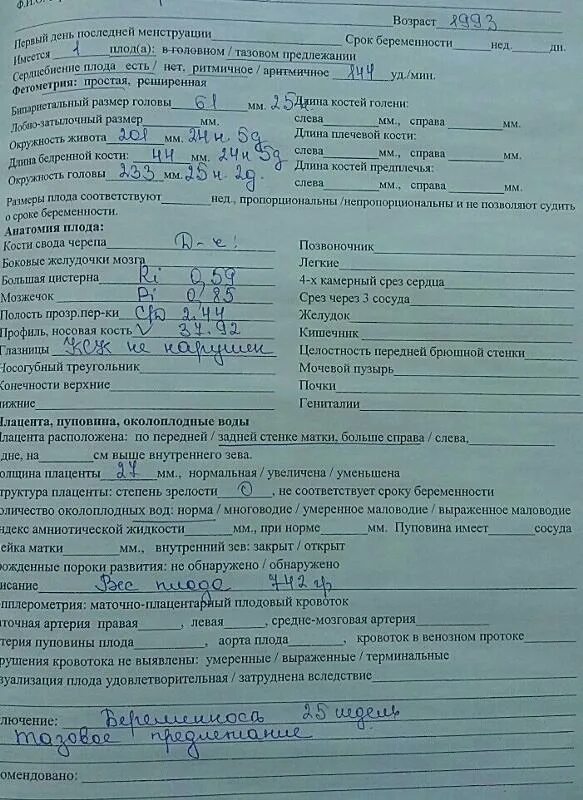 Ф.И.О.
Возраст 1993
Первый день последней менструации Срок беременности нед. дн.
Имеется 1 плод(а): в головном / тазовом предлежании
Сердцебиение плода есть / нет, ритмичное / аритмичное 144 уд./мин.
Фетометрия: простая, расширенная
Бипариетальный размер головы 61 мм. 25 н Длина костей голени:
Лобно-затылочный размер мм. слева мм., справа мм.
Окружность живота 201 мм. 24 н 5д Длина плечевой кости:
Длина бедренной кости: 44 мм. 24н 5д слева мм., справа мм.
Окружность головы 233 мм. 25 н. 2д. Длина костей предплечья:
слева мм., справа мм.
Размеры плода соответствуют нед., пропорциональны /непропорциональны и не позволяют судить
о сроке беременности.
Анатомия плода:
Кости свода черепа D-к: Позвоночник
Боковые желудочки мозга Легкие
Большая цистерна Ri 0,59 4-х камерный срез сердца
Мозжечок Pi 0,85 Срез через 3 сосуда
Полость прозр.пер-ки С/Д 2.44 Желудок
Профиль, носовая кость V 37.92 Кишечник
Глазницы КСК не нарушен Целостность передней брюшной стенки
Носогубный треугольник Мочевой пузырь
Конечности верхние Почки
нижние Гениталии
Плацента, пуповина, околоплодные воды
Плацента расположена: по передней / задней стенке матки, больше справа / слева,
дне, на см выше внутреннего зева.
олщина плаценты 27 мм., нормальная / увеличена / уменьшена
труктура плаценты: степень зрелости 0, не соответствует сроку беременности
оличество околоплодных вод: норма / многоводие / умеренное маловодие / выраженное маловодие
ндекс амниотической жидкости мм., при норме мм. Пуповина имеет сосуда
ейка матки мм., внутренний зев: закрыт / открыт
рожденные пороки развития: не обнаружено / обнаружено
исание Вес плода 742 гр
опплерометрия: маточно-плацентарный плодовый кровоток
аточная артерия правая, левая, средне-мозговая артерия
терия пуповины плода, аорта плода, кровоток в венозном протоке
рушения кровотока не выявлены: умеренные / выраженные / терминальные
зуализация плода удовлетворительная / затруднена вследствие
ключение: Беременность 25 недель
тазовое предлежание
комендовано: